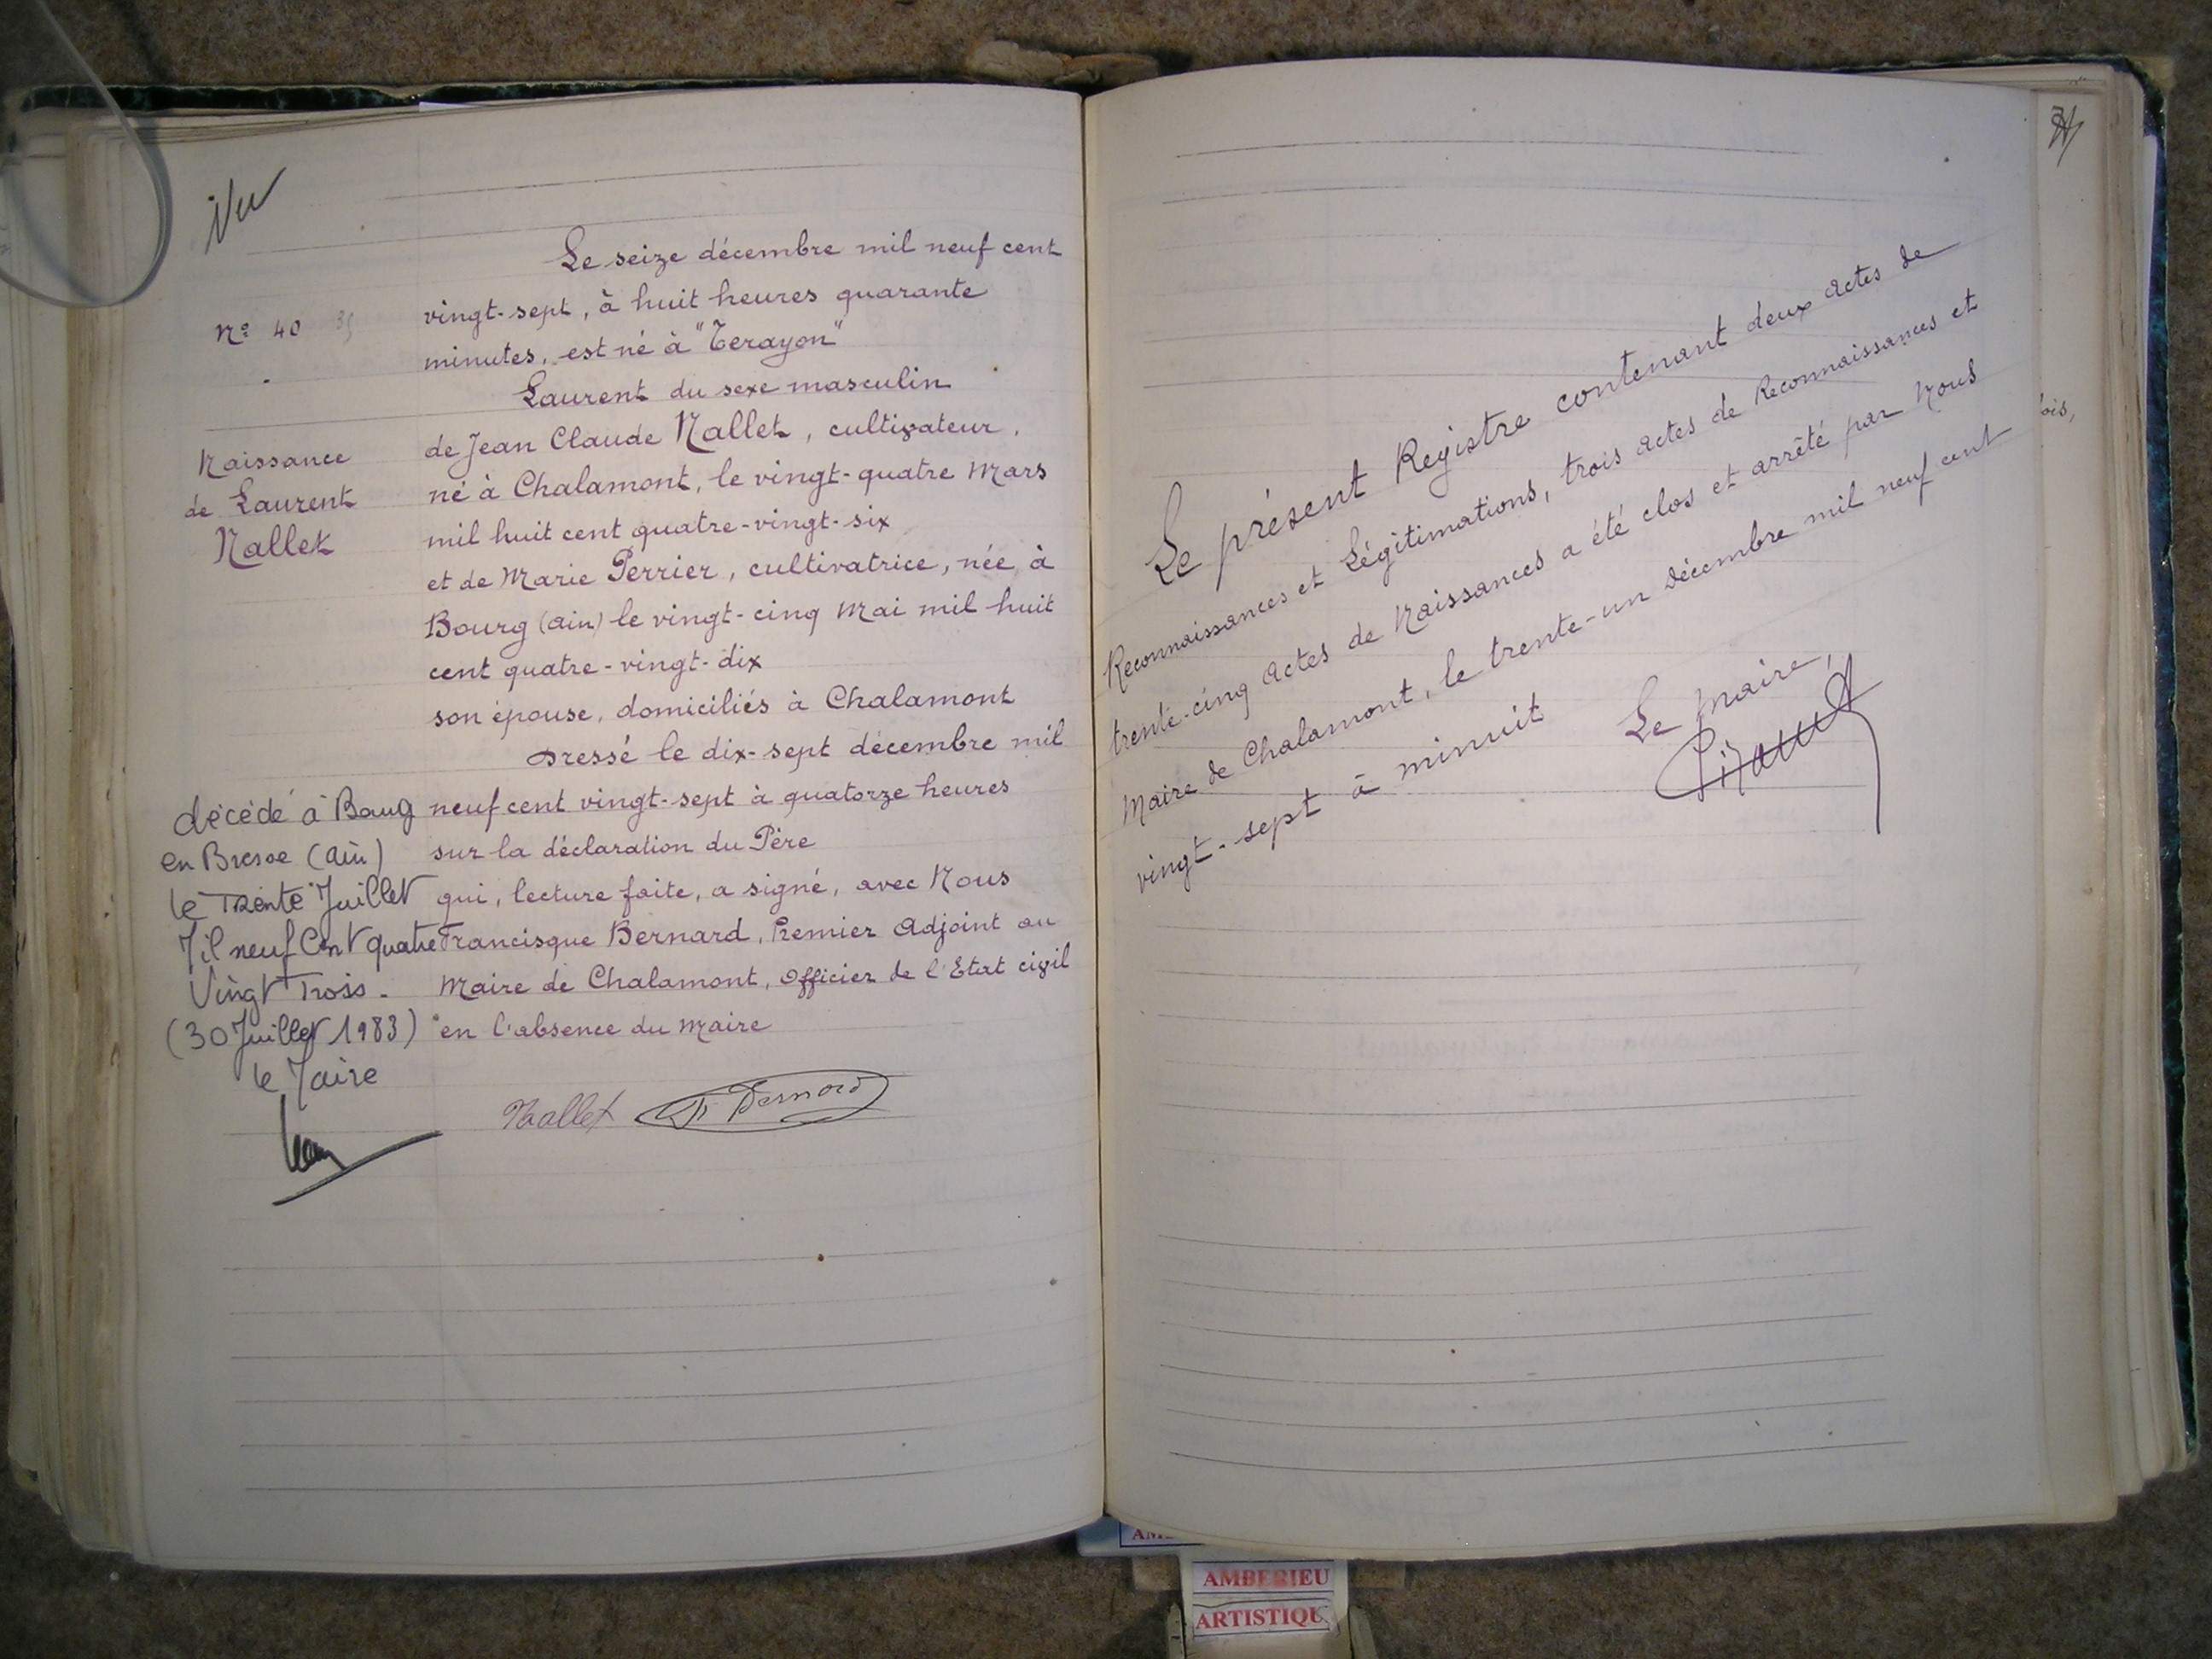 Vu
Nº 40 35
Naissance
de Laurent
Nallet
Le seize décembre mil neuf cent
vingt-sept, à huit heures quarante
minutes, est né à "Terayon"
Laurent du sexe masculin
de Jean Claude Nallet, cultivateur,
né à Chalamont, le vingt-quatre Mars
mil huit cent quatre-vingt-six
et de Marie Perrier, cultivatrice, née à
Bourg (Ain) le vingt-cinq Mai mil huit
cent quatre-vingt-dix
son épouse, domiciliés à Chalamont
Dressé le dix-sept décembre mil
neuf cent vingt-sept à quatorze heures
sur la déclaration du Père
qui, lecture faite, a signé, avec Nous
Francisque Bernard, Premier Adjoint au
Maire de Chalamont, Officier de l'Etat civil
en l'absence du Maire
Nallet F. Bernard
décédé à Bourg
en Bresse (Ain)
le Trente Juillet
Mil neuf Cent quatre
Vingt Trois -
(30 Juillet 1983)
le Maire
Le présent Registre contenant deux actes de
Reconnaissances et Légitimations, trois actes de Reconnaissances et
trente-cinq Actes de Naissances a été clos et arrêté par Nous
Maire de Chalamont, le trente-un Décembre mil neuf cent
vingt-sept à minuit
Le Maire,
ois,
AMBERIEU
ARTISTIQU